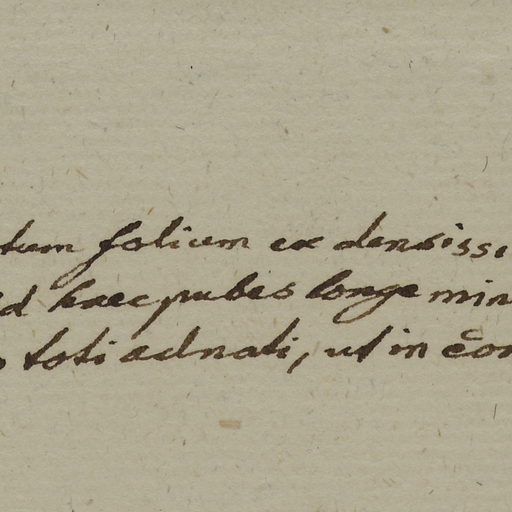 tum folium ex densissi
id haec pubes longe min
toti adnati, ut in con